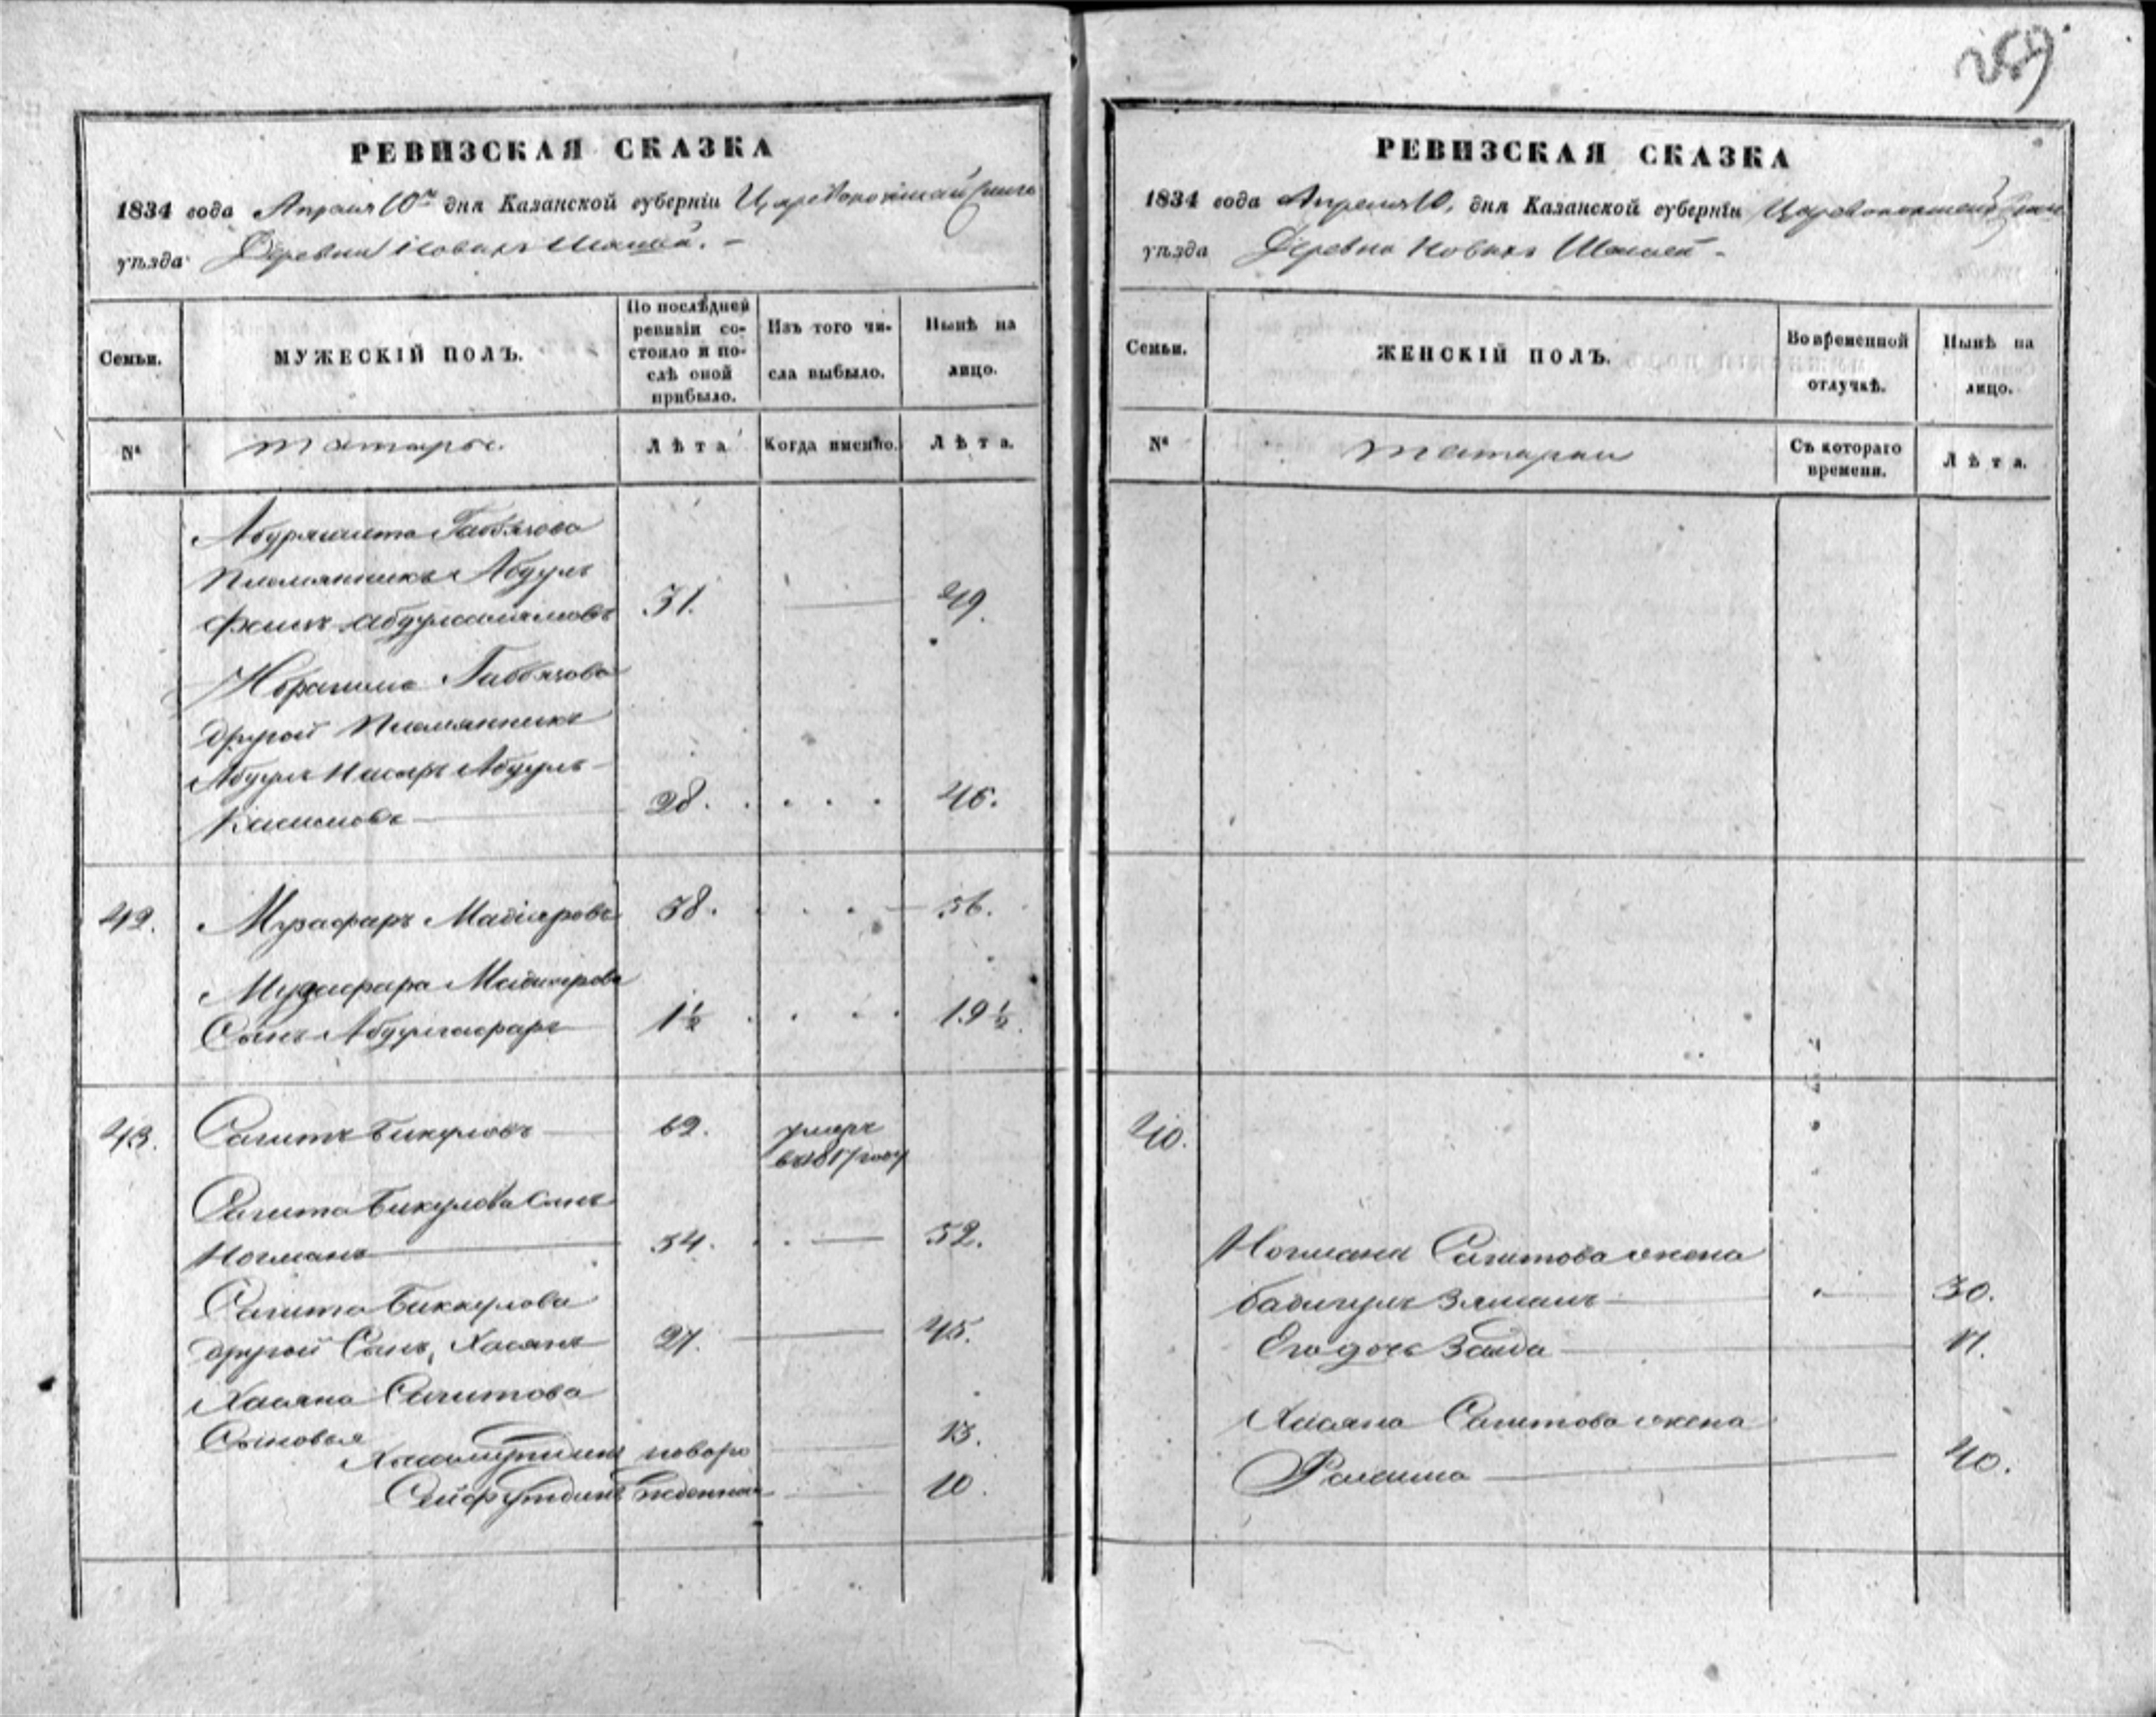 259
РЕВИЗСКАЯ СКАЗКА
1834 года Апреля 10го дня Казанской губерніи Царевококшайскаго
уѣзда Деревни Новыхъ
Семьи.
МУЖЕСКІЙ ПОЛЪ.
По послѣдней
ревизіи со-
стояло и по-
слѣ оной
прибыло.
Изъ того чи-
сла выбыло.
Нынѣ на
лицо.
№
татары.
Лѣта
Когда именно.
Лѣта.
племянникъ Абдулъ
31. 49.
Ибрагима
другой племянникъ
Абдулъ Насыръ Абдулъ-
28. 46.
42. Музафаръ Мадіяровъ 38. 56.
Музафара Мадіярова
Сынъ Абдулгафаръ 1½ 19½
43. Сагитъ Бикуловъ 62. умеръ
въ 1817 году
Сагита Бикулова Сынъ
Ногманъ 34. 52.
Сагита Биккулова
другой Сынъ, Хасянъ 27. 45.
Хасяна Сагитова
Сыновья
новоро 13.
Сейфутдинъ жденные 10.
РЕВИЗСКАЯ СКАЗКА
1834 года Апреля 10, дня Казанской губерніи Царевококшайскаго
уѣзда Деревни Новыхъ
Семьи.
ЖЕНСКІЙ ПОЛЪ.
Во временной
отлучкѣ.
Нынѣ на
лицо.
№
татарки
Съ котораго
времени.
Лѣта.
40.
Ногмана Сагитова жена
30.
Его дочь Заида
Хасяна Сагитова жена
40.